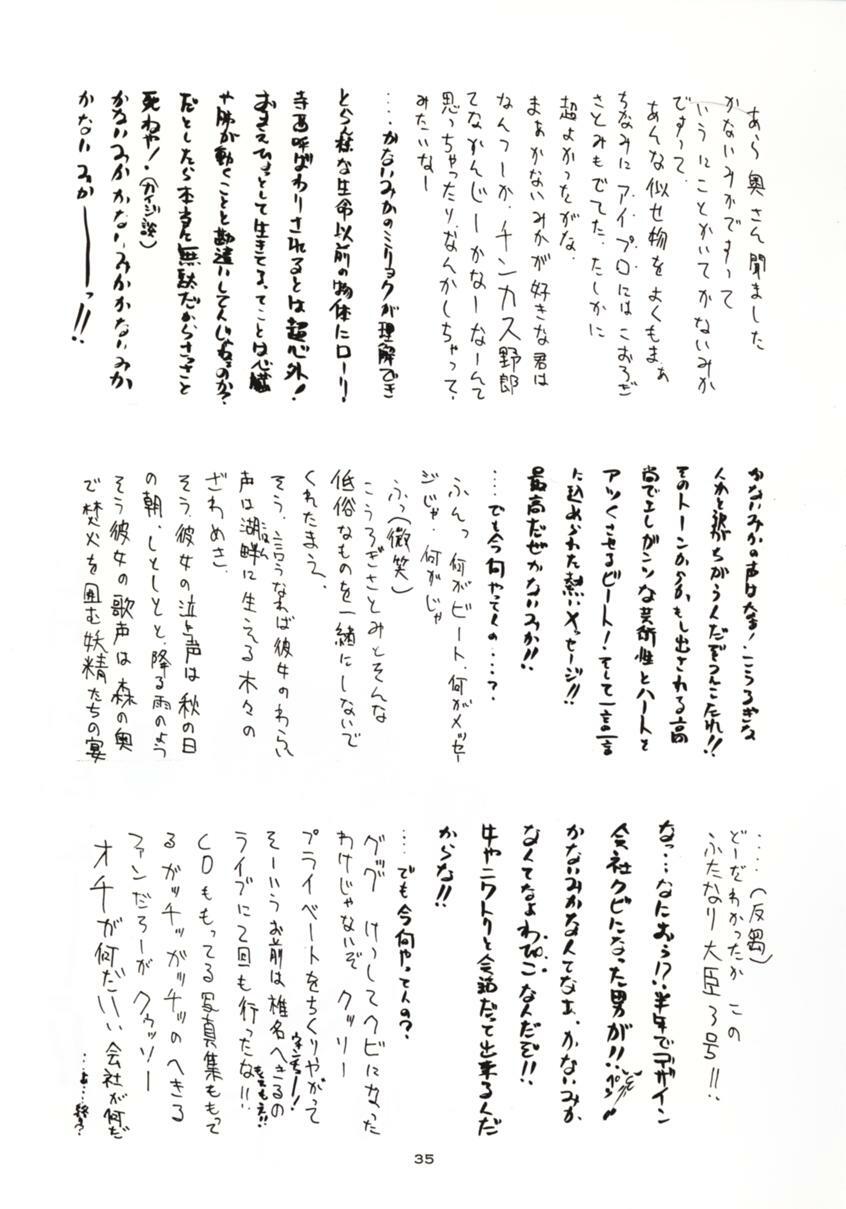 あら奥さん聞ました
かないみかですって
いうにことかいてかないみか
ですって、
あんな似せ物をよくもまぁ
ちなみにアイ・プロにはこおろぎ
さとみもでてた、たしかに
超よかったがな、
まぁかないみかが好きな君は
なんつーか、チンカス野郎
てなかんじーかなーなーんて
思っちゃったり、なんかしちゃって、
みたいなー
…、かないみかのミリョクが理解でき
とらん様な生命以前の物体にロリー!
寺西呼ばわりされるとは超心外!
おまえひょっとして生きてるってことは心臓
や肺が動くことと勘違いしてんじゃねえのか?
だとしたら本当に無駄だからさっさと
死ねや!(カイジ談)
かないみかかないみかかないみか
かないみかーーっ!!
かないみかの声は大事!こうろぎな
んかと訳がちがうんだぞうんこたれ!!
そのトーンからかもし出される高
尚でエレガンツな芸術性とハートを
アツくさせるビート!そして一言一言
に込められた熱いメッセージ!!
最高だぜかないみか!!
…、でも今何やってんの…、?
ふんっ何がビート、何がメッセー
ジじゃ、何がじゃ
ふっ(微笑)
こうろぎさとみとそんな
低俗なものを一緒にしないで
くれたまえ、
そう、言うなれば彼女のわらい
声は湖畔に生える木々の
こはん
ざわめき、
そう、彼女の泣き声は秋の日
の朝、しとしとと、降る雨のよう
そう彼女の歌声は森の奥
で焚火を囲む妖精たちの宴
…、(反芻)
どーだわかったか この
ふたなり大臣3号!!
なっ…なにおぅ!?半年でデザイン
会社クビになった男が!!ペッ!!
かないみかなくてなぁ、かないみか
なくてなよわぴこなんだぞ!!
牛やニワトリと会話だって出来るんだ
からな!!
…、でも今何やってんの?
グッグ けっしてクビになった
わけじゃないぞ クッソー
プライベートをちくりやがって
そーいうお前は椎名へきるの
ライブに2回も行ったな!!
CDももってる写真集ももって
るガッチッガッチッのへきる
ファンだろーが クゥッソー
オチが何だいい会社が何だ
…よ…、終る?
35